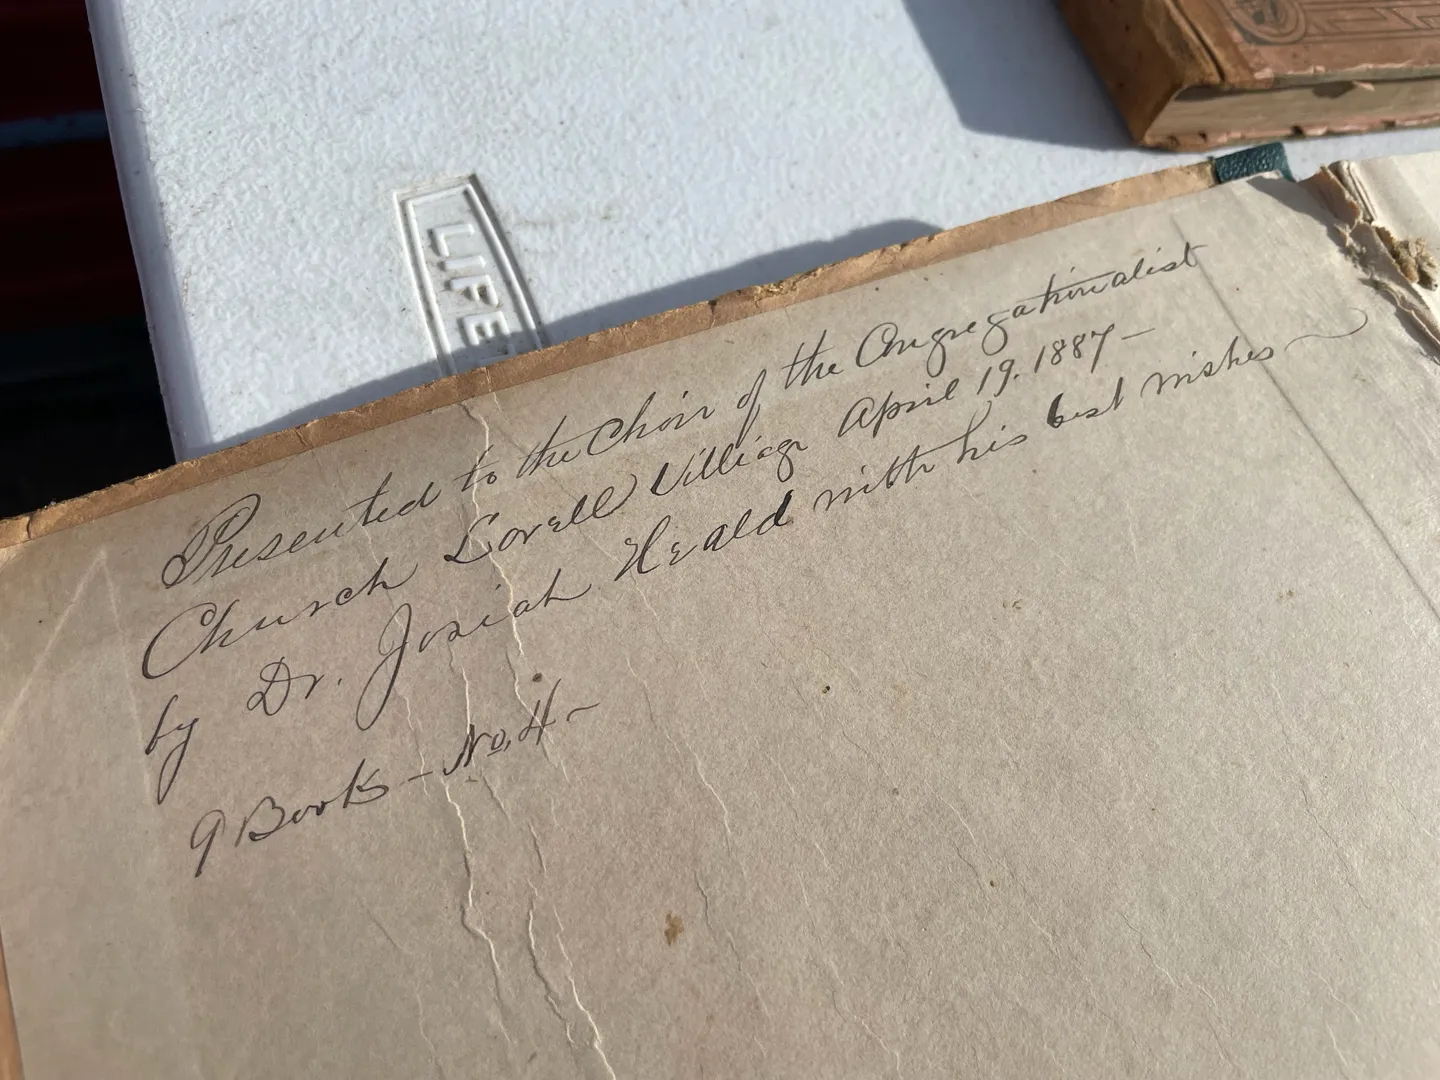 LIFE
Presented to the Choir of the Congregationalist
Church Lovell Village April 19. 1887 –
by Dr. Josiah Heald with his best wishes
9 Books – No. 4 –